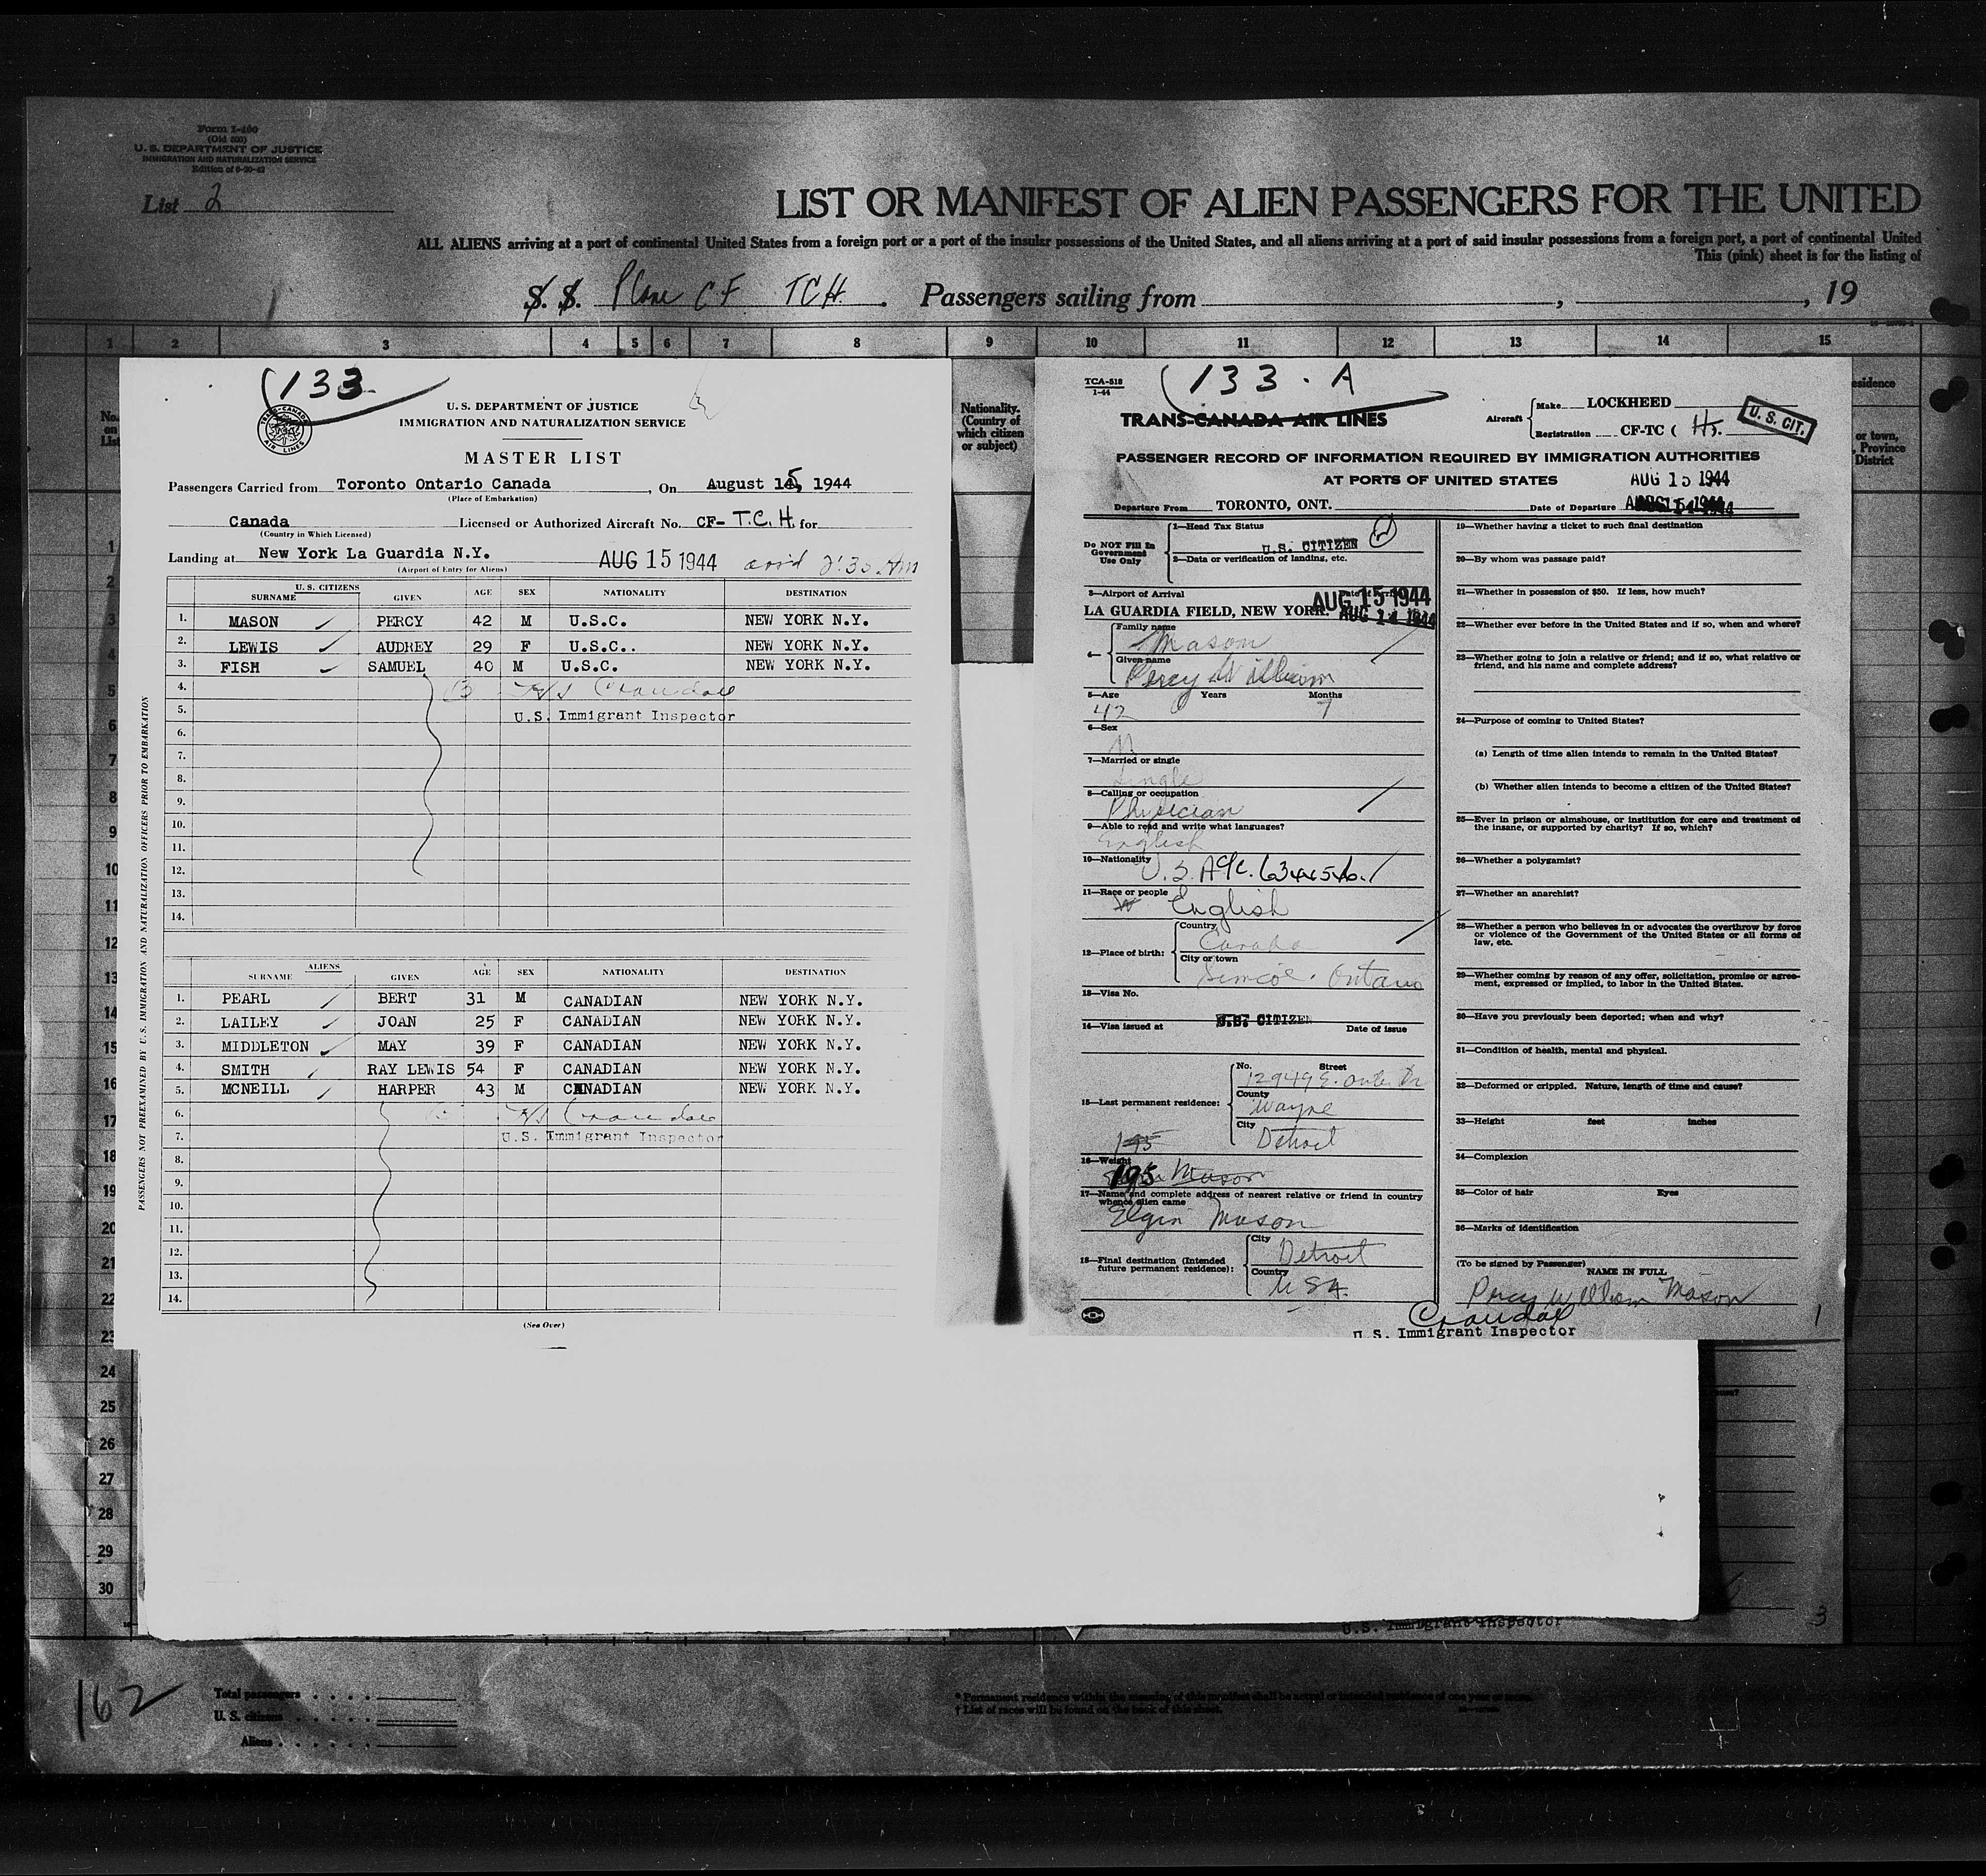 Form I-460
(Old 500)
U. S. DEPARTMENT OF JUSTICE
IMMIGRATION AND NATURALIZATION SERVICE
Edition of 6-20-42
List 2
LIST OR MANIFEST OF ALIEN PASSENGERS FOR THE UNITED
ALL ALIENS arriving at a port of continental United States from a foreign port or a port of the insular possessions of the United States, and all aliens arriving at a port of said insular possessions from a foreign port, a port of continental United
This (pink) sheet is for the listing of
S. S. Plane CF TCH. Passengers sailing from , , 19
1 2 3 4 5 6 7 8 9 10 11 12 13 14 15
133
TRANS-CANADA AIR LINES
U. S. DEPARTMENT OF JUSTICE
IMMIGRATION AND NATURALIZATION SERVICE
MASTER LIST
Passengers Carried from Toronto Ontario Canada, On August 15, 1944
(Place of Embarkation)
Canada Licensed or Authorized Aircraft No. CF- T.C.H. for
(Country in Which Licensed)
Landing at New York La Guardia N.Y. AUG 15 1944 2:35 Am
(Airport of Entry for Aliens)
U.S. CITIZENS
SURNAME GIVEN AGE SEX NATIONALITY DESTINATION
1. MASON PERCY 42 M U.S.C. NEW YORK N.Y.
2. LEWIS AUDREY 29 F U.S.C.. NEW YORK N.Y.
3. FISH SAMUEL 40 M U.S.C. NEW YORK N.Y.
4. Crandall
5. U.S. Immigrant Inspector
6.
7.
8.
9.
10.
11.
12.
13.
14.
ALIENS
SURNAME GIVEN AGE SEX NATIONALITY DESTINATION
1. PEARL BERT 31 M CANADIAN NEW YORK N.Y.
2. LAILEY JOAN 25 F CANADIAN NEW YORK N.Y.
3. MIDDLETON MAY 39 F CANADIAN NEW YORK N.Y.
4. SMITH RAY LEWIS 54 F CANADIAN NEW YORK N.Y.
5. MCNEILL HARPER 43 M CANADIAN NEW YORK N.Y.
6. Crandall
7. U.S. Immigrant Inspector
8.
9.
10.
11.
12.
13.
14.
(See Over)
PASSENGERS NOT PREEXAMINED BY U. S. IMMIGRATION AND NATURALIZATION OFFICERS PRIOR TO EMBARKATION
Nationality.
(Country of
which citizen
or subject)
TCA-518
1-44
133. A
TRANS-CANADA AIR LINES
Aircraft Make LOCKHEED
Registration CF-TC ( H).
U. S. CIT.
PASSENGER RECORD OF INFORMATION REQUIRED BY IMMIGRATION AUTHORITIES
AT PORTS OF UNITED STATES AUG 15 1944
Departure From TORONTO, ONT. Date of Departure
Do NOT Fill In
Government
Use Only
1—Head Tax Status
U.S. CITIZEN
2—Data or verification of landing, etc.
3—Airport of Arrival
LA GUARDIA FIELD, NEW YORK. AUG 15 1944
AUG 14 1944
4—
Family name
Mason
Given name
Percy William
5—Age Years Months
42 7
6—Sex
M
7—Married or single
Single
8—Calling or occupation
Physician
9—Able to read and write what languages?
English
10—Nationality
U.S.A
11—Race or people
English
12—Place of birth:
Country
Canada
City or town
Simcoe. Ontario
13—Visa No.
14—Visa issued at U.S. CITIZEN Date of issue
15—Last permanent residence:
No. Street
12949 E. Outer Dr
County
Wayne
City
Detroit
195
16—Weight
195 Mason
17—Name and complete address of nearest relative or friend in country
whence alien came
Elgin Mason
18—Final destination (Intended
future permanent residence):
City
Detroit
Country
USA.
19—Whether having a ticket to such final destination
20—By whom was passage paid?
21—Whether in possession of $50. If less, how much?
22—Whether ever before in the United States and if so, when and where?
23—Whether going to join a relative or friend; and if so, what relative or
friend, and his name and complete address?
24—Purpose of coming to United States?
(a) Length of time alien intends to remain in the United States?
(b) Whether alien intends to become a citizen of the United States?
25—Ever in prison or almshouse, or institution for care and treatment of
the insane, or supported by charity? If so, which?
26—Whether a polygamist?
27—Whether an anarchist?
28—Whether a person who believes in or advocates the overthrow by force
or violence of the Government of the United States or all forms of
law, etc.
29—Whether coming by reason of any offer, solicitation, promise or agree-
ment, expressed or implied, to labor in the United States.
30—Have you previously been deported; when and why?
31—Condition of health, mental and physical.
32—Deformed or crippled. Nature, length of time and cause?
33—Height feet inches
34—Complexion
35—Color of hair Eyes
36—Marks of identification
(To be signed by Passenger) NAME IN FULL
Percy William Mason
Crandall
U.S. Immigrant Inspector
1
esidence
or town,
, Province
District
No.
on
List
1
2
3
4
5
6
7
8
9
10
11
12
13
14
15
16
17
18
19
20
21
22
23
24
25
26
27
28
29
30
U.S. Immigrant Inspector
3
162
Total passengers
U. S. citizens
Aliens
* Permanent residence within the meaning of this manifest shall be actual or intended residence of one year or more.
† List of races will be found on the back of this sheet.